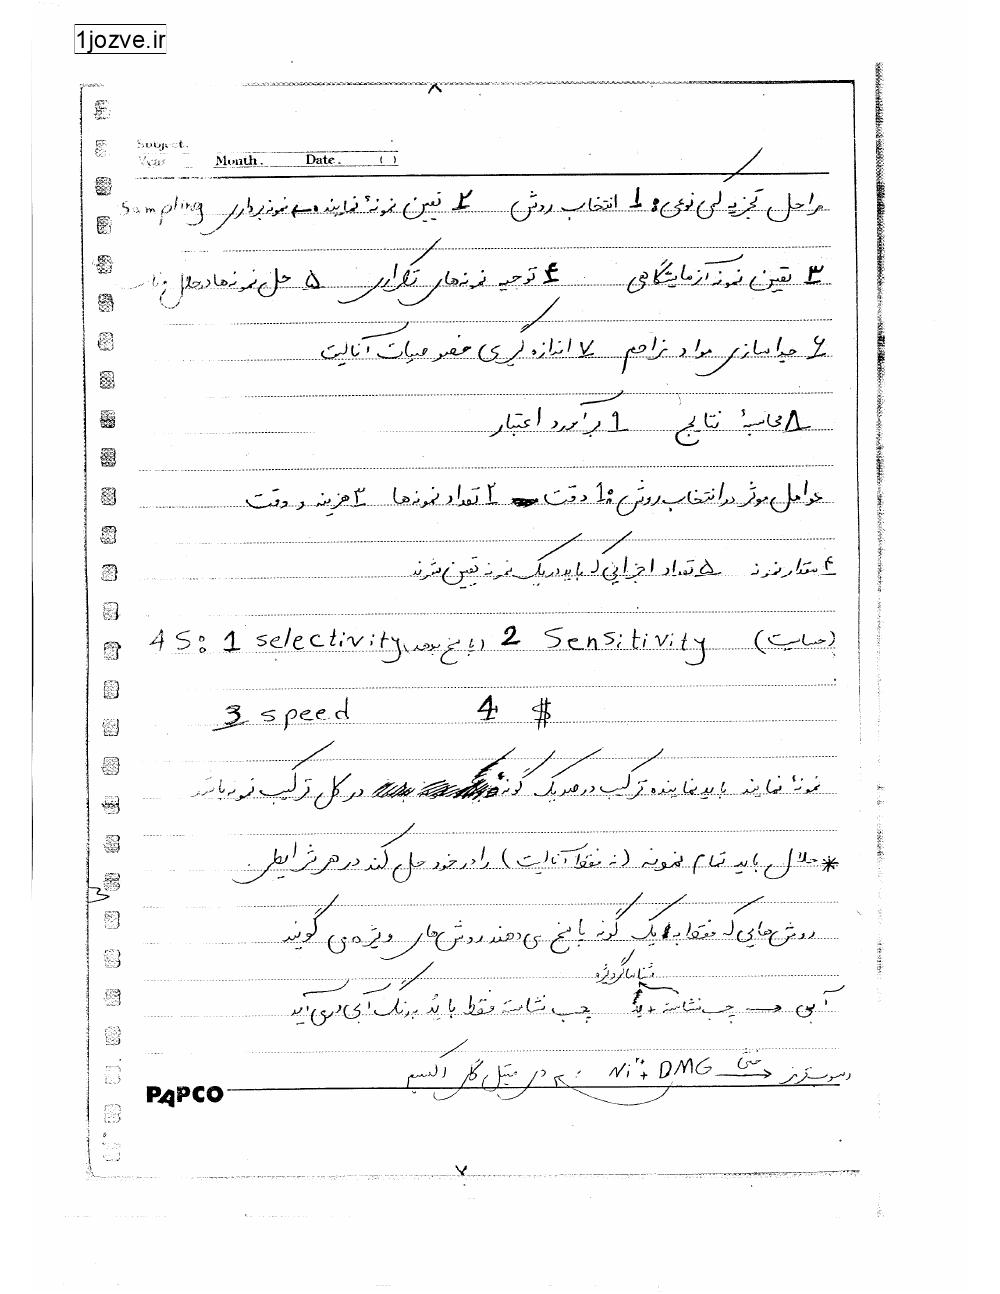 1jozve.ir
۸
Subject.
Year Month. Date. ( )
مراحل تجزیه کمی نوعی: 1 انتخاب روش ۲ تعیین نمونهٔ نماینده ← نمونه‌برداری Sampling
۳ تعیین نمونه آزمایشگاهی ۴ توجیه نمونه‌های تکراری ۵ حل نمونه‌ها در حلال
۶ جداسازی مواد مزاحم ۷ اندازه گیری خصوصیات آنالیت
۸ محاسبهٔ نتایج ۹ برآورد اعتبار
عوامل موثر در انتخاب روش: 1 دقت ۲ تعداد نمونه‌ها ۳ هزینه و وقت
۴ مقدار نمونه ۵ تعداد اجزایی که باید در یک نمونه تعیین شوند
4 S: 1 selectivity 2 Sensitivity (حساسیت)
3 speed 4 $
نمونهٔ نماینده باید نماینده ترکیب درصد یک گونه در کل ترکیب نمونه باشد
* حلال باید تمام نمونه (نه فقط آنالیت) را در خود حل کند در هر شرایطی.
روش‌هایی که فقط به یک گونه پاسخ می‌دهند روش‌های ویژه می گویند
شناساگر ویژه
آبی ← چسب نشاسته + ید چسب نشاسته فقط با ید به رنگ آبی در می آید
Ni²⁺ + DMG → دی متیل گلی اکسیم
PAPCO
۷